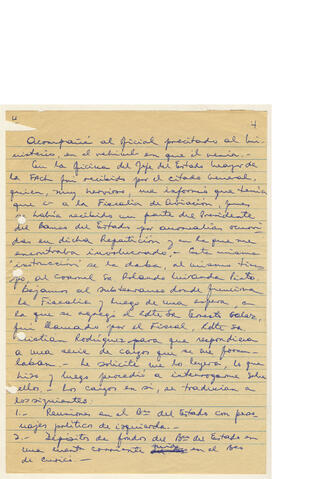 4 4
Acompañé al oficial precitado al Mi-
nisterio, en el vehículo en que él venía.-
En la Oficina del Jefe del Estado Mayor de
la FACH fui recibido por el citado General,
quien, muy nervioso, me informó que tenía
que ir a la Fiscalía de Aviación, pues
había recibido un parte del Presidente
del Banco del Estado por anomalías ocurri-
das en dicha Repartición y en la que me
encontraba involucrado.- Esta misma
instrucción se la daba, al mismo tiem-
po, al Coronel Sr Rolando Miranda Pinto.
Bajamos al subterráneo donde funciona
la Fiscalía y luego de una espera, en
la que se agregó el Cdte Sr Ernesto Galaz,
fui llamado por el Fiscal, Cdte Sr.
Cristian Rodríguez para que respondiera
a una serie de cargos que se me formu-
laban.- Le solicité me los leyera, lo que
hizo y luego procedió a interrogarme sobre
ellos.- Los cargos en sí, se traducían a
los siguientes:
1.- Reuniones en el Bco del Estado con perso
najes políticos de izquierda.-
2.- Depósitos de fondos del Bco del Estado en
una cuenta corriente en el Bco
de Curicó.-